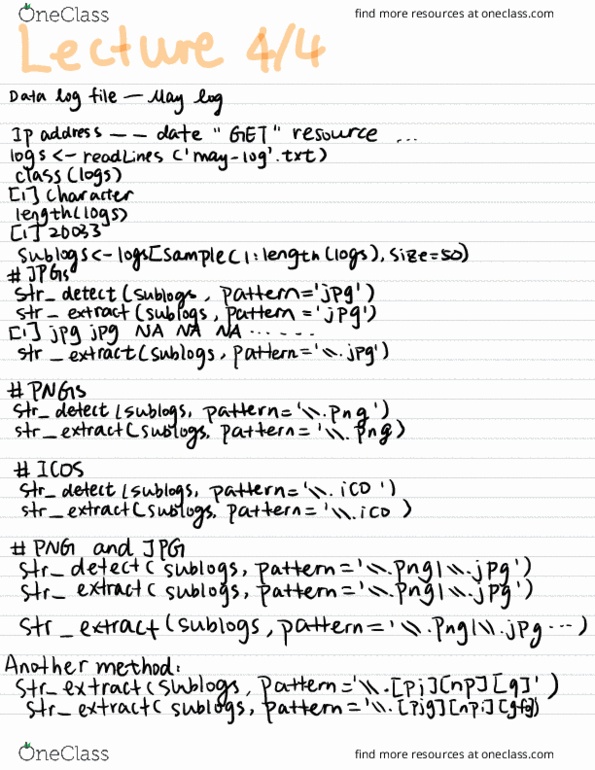 OneClass
find more resources at oneclass.com
Lecture 4/4
Data log file — May log
Ip address —— date "GET" resource ...
logs <- readLines ('may-log'.txt)
class (logs)
[1] Character
length(logs)
[1] 20033
Sublogs <- logs[sample(1:length(logs), size=50)
# JPGs
str_detect (sublogs, pattern='jpg')
str_extract (sublogs, pattern='jpg')
[1] jpg jpg NA NA NA ......
str_extract(sublogs, pattern='\\.jpg')
# PNGs
str_detect (sublogs, pattern='\\.png')
str_extract(sublogs, pattern='\\.png)
# ICOS
str_detect (sublogs, pattern='\\.ico')
str_extract(sublogs, pattern='\\.ico)
# PNG and JPG
str_detect( sublogs, pattern='\\.png|\\.jpg')
str_extract( sublogs, pattern='\\.png|\\.jpg')
str_extract(sublogs, pattern='\\.png|\\.jpg ...)
Another method:
str_extract( sublogs, pattern='\\.[pj][np][g]')
str_extract( sublogs, pattern='\\.[pjg][npi][gf])
OneClass
find more resources at oneclass.com